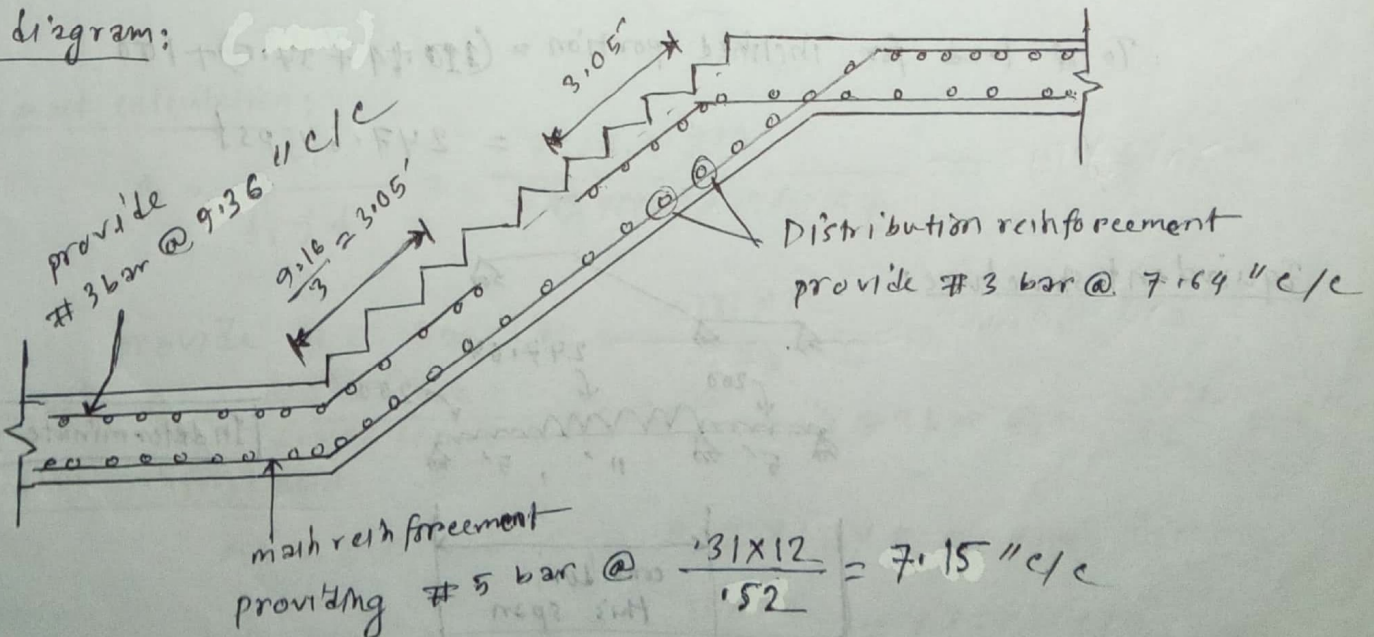 diagram:
3.05'
provide
# 3 bar @ 9.36 " c/c
9.16/3 = 3.05'
Distribution reinforcement
provide # 3 bar @ 7.69 " c/c
main reinforcement
providing # 5 bar @ .31×12/.52 = 7.15 " c/c